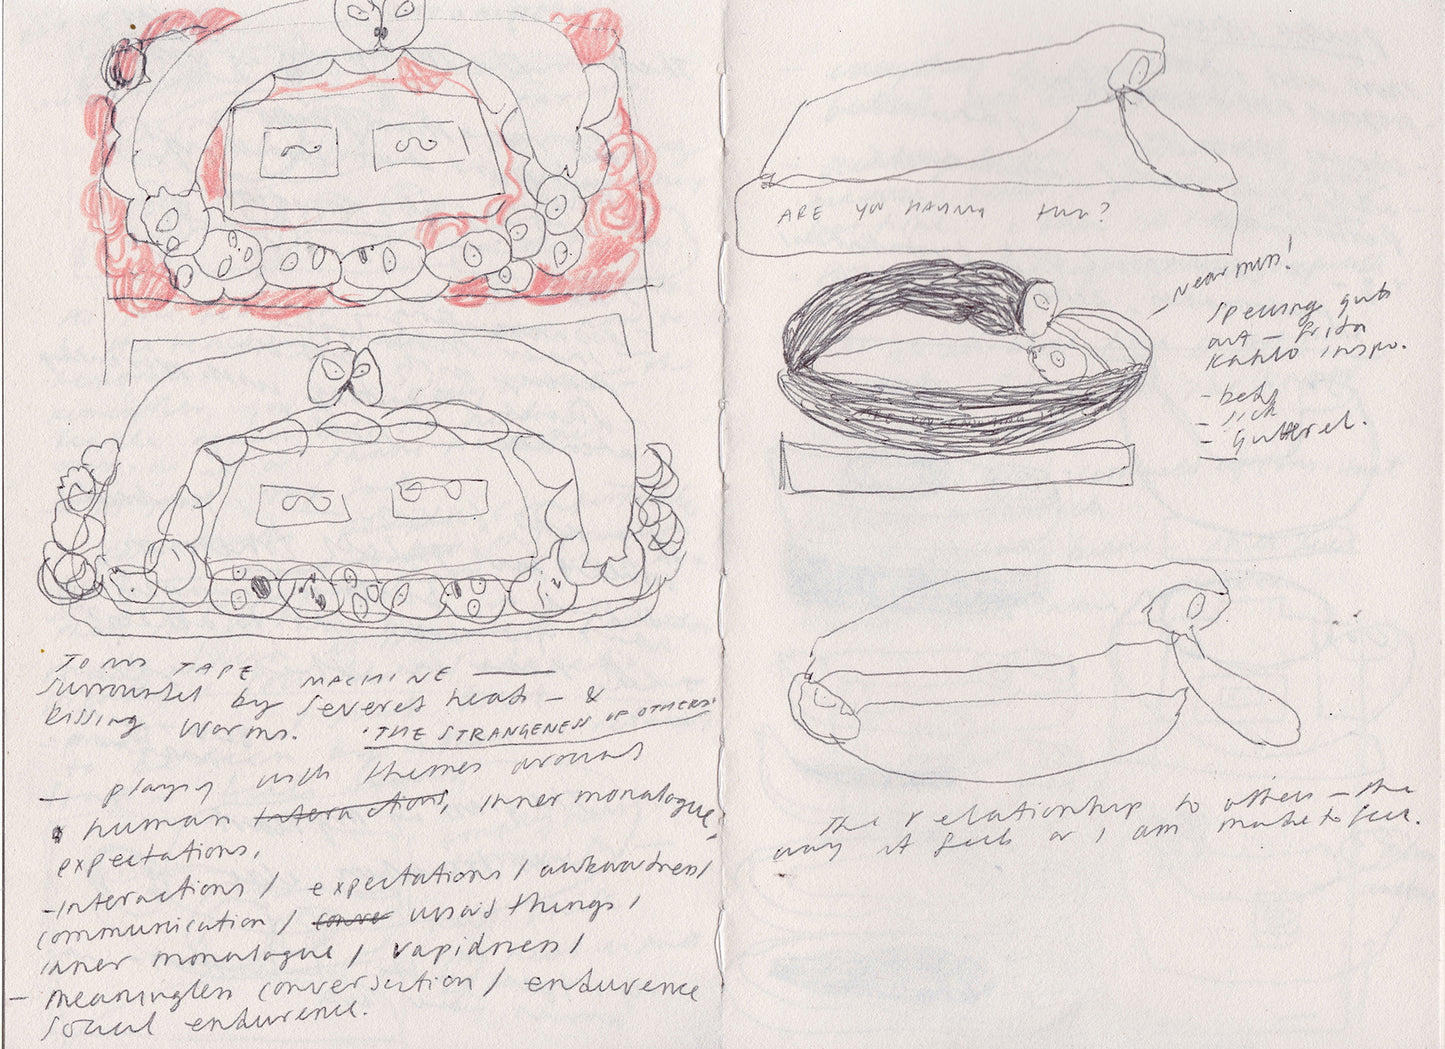 TOMS TAPE MACHINE
Surrounded by severed heads - &
kissing worms. 'THE STRANGENESS OF OTHERS'
- playing with themes around
human interactions, inner monologue,
expectations.
- interactions / expectations / awkwardness /
communication / conver unsaid things /
inner monologue / vapidness /
- meaningless conversation / endurence
social endurence.
ARE YOU HAVING FUN?
Near miss!
Spewing guts
out - Frida
Kahlo inspo.
- bed
- sick
- Gutteral.
The relationship to others - the
way it feels or I am made to feel.